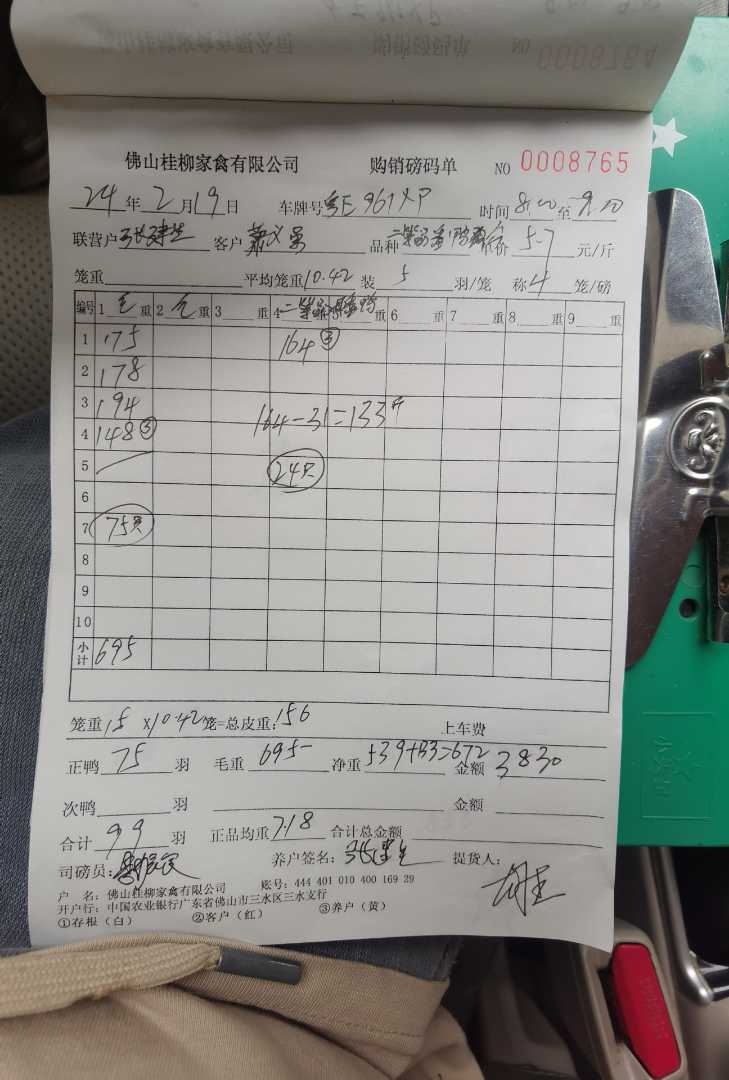 佛山桂柳家禽有限公司 购销磅码单 NO 0008765
24 年 2 月 19 日 车牌号 粤E 961XP 时间 8:00 至 9:00
联营户 张建生 客户 萧义 品种 价 5.7 元/斤
笼重 平均笼重 10.42 装 5 羽/笼 称 4 笼/磅
编号 1 毛 重 2 毛 重 3 重 4 重 6 重 7 重 8 重 9 重
1 175 164③
2 178
3 194 164-31=133斤
4 148③
5 24只
6
7 75只
8
9
10
小计 695
笼重 15 x10.42 笼=总皮重: 156 上车费
正鸭 75 羽 毛重 695- 净重 539+133=672 金额 3830
次鸭 羽 金额
合计 99 羽 正品均重 7.18 合计总金额
司磅员: 养户签名: 张建生 提货人:
户 名: 佛山桂柳家禽有限公司 账号: 444 401 010 400 169 29
开户行: 中国农业银行广东省佛山市三水区三水支行
①存根（白） ②客户（红） ③养户（黄）